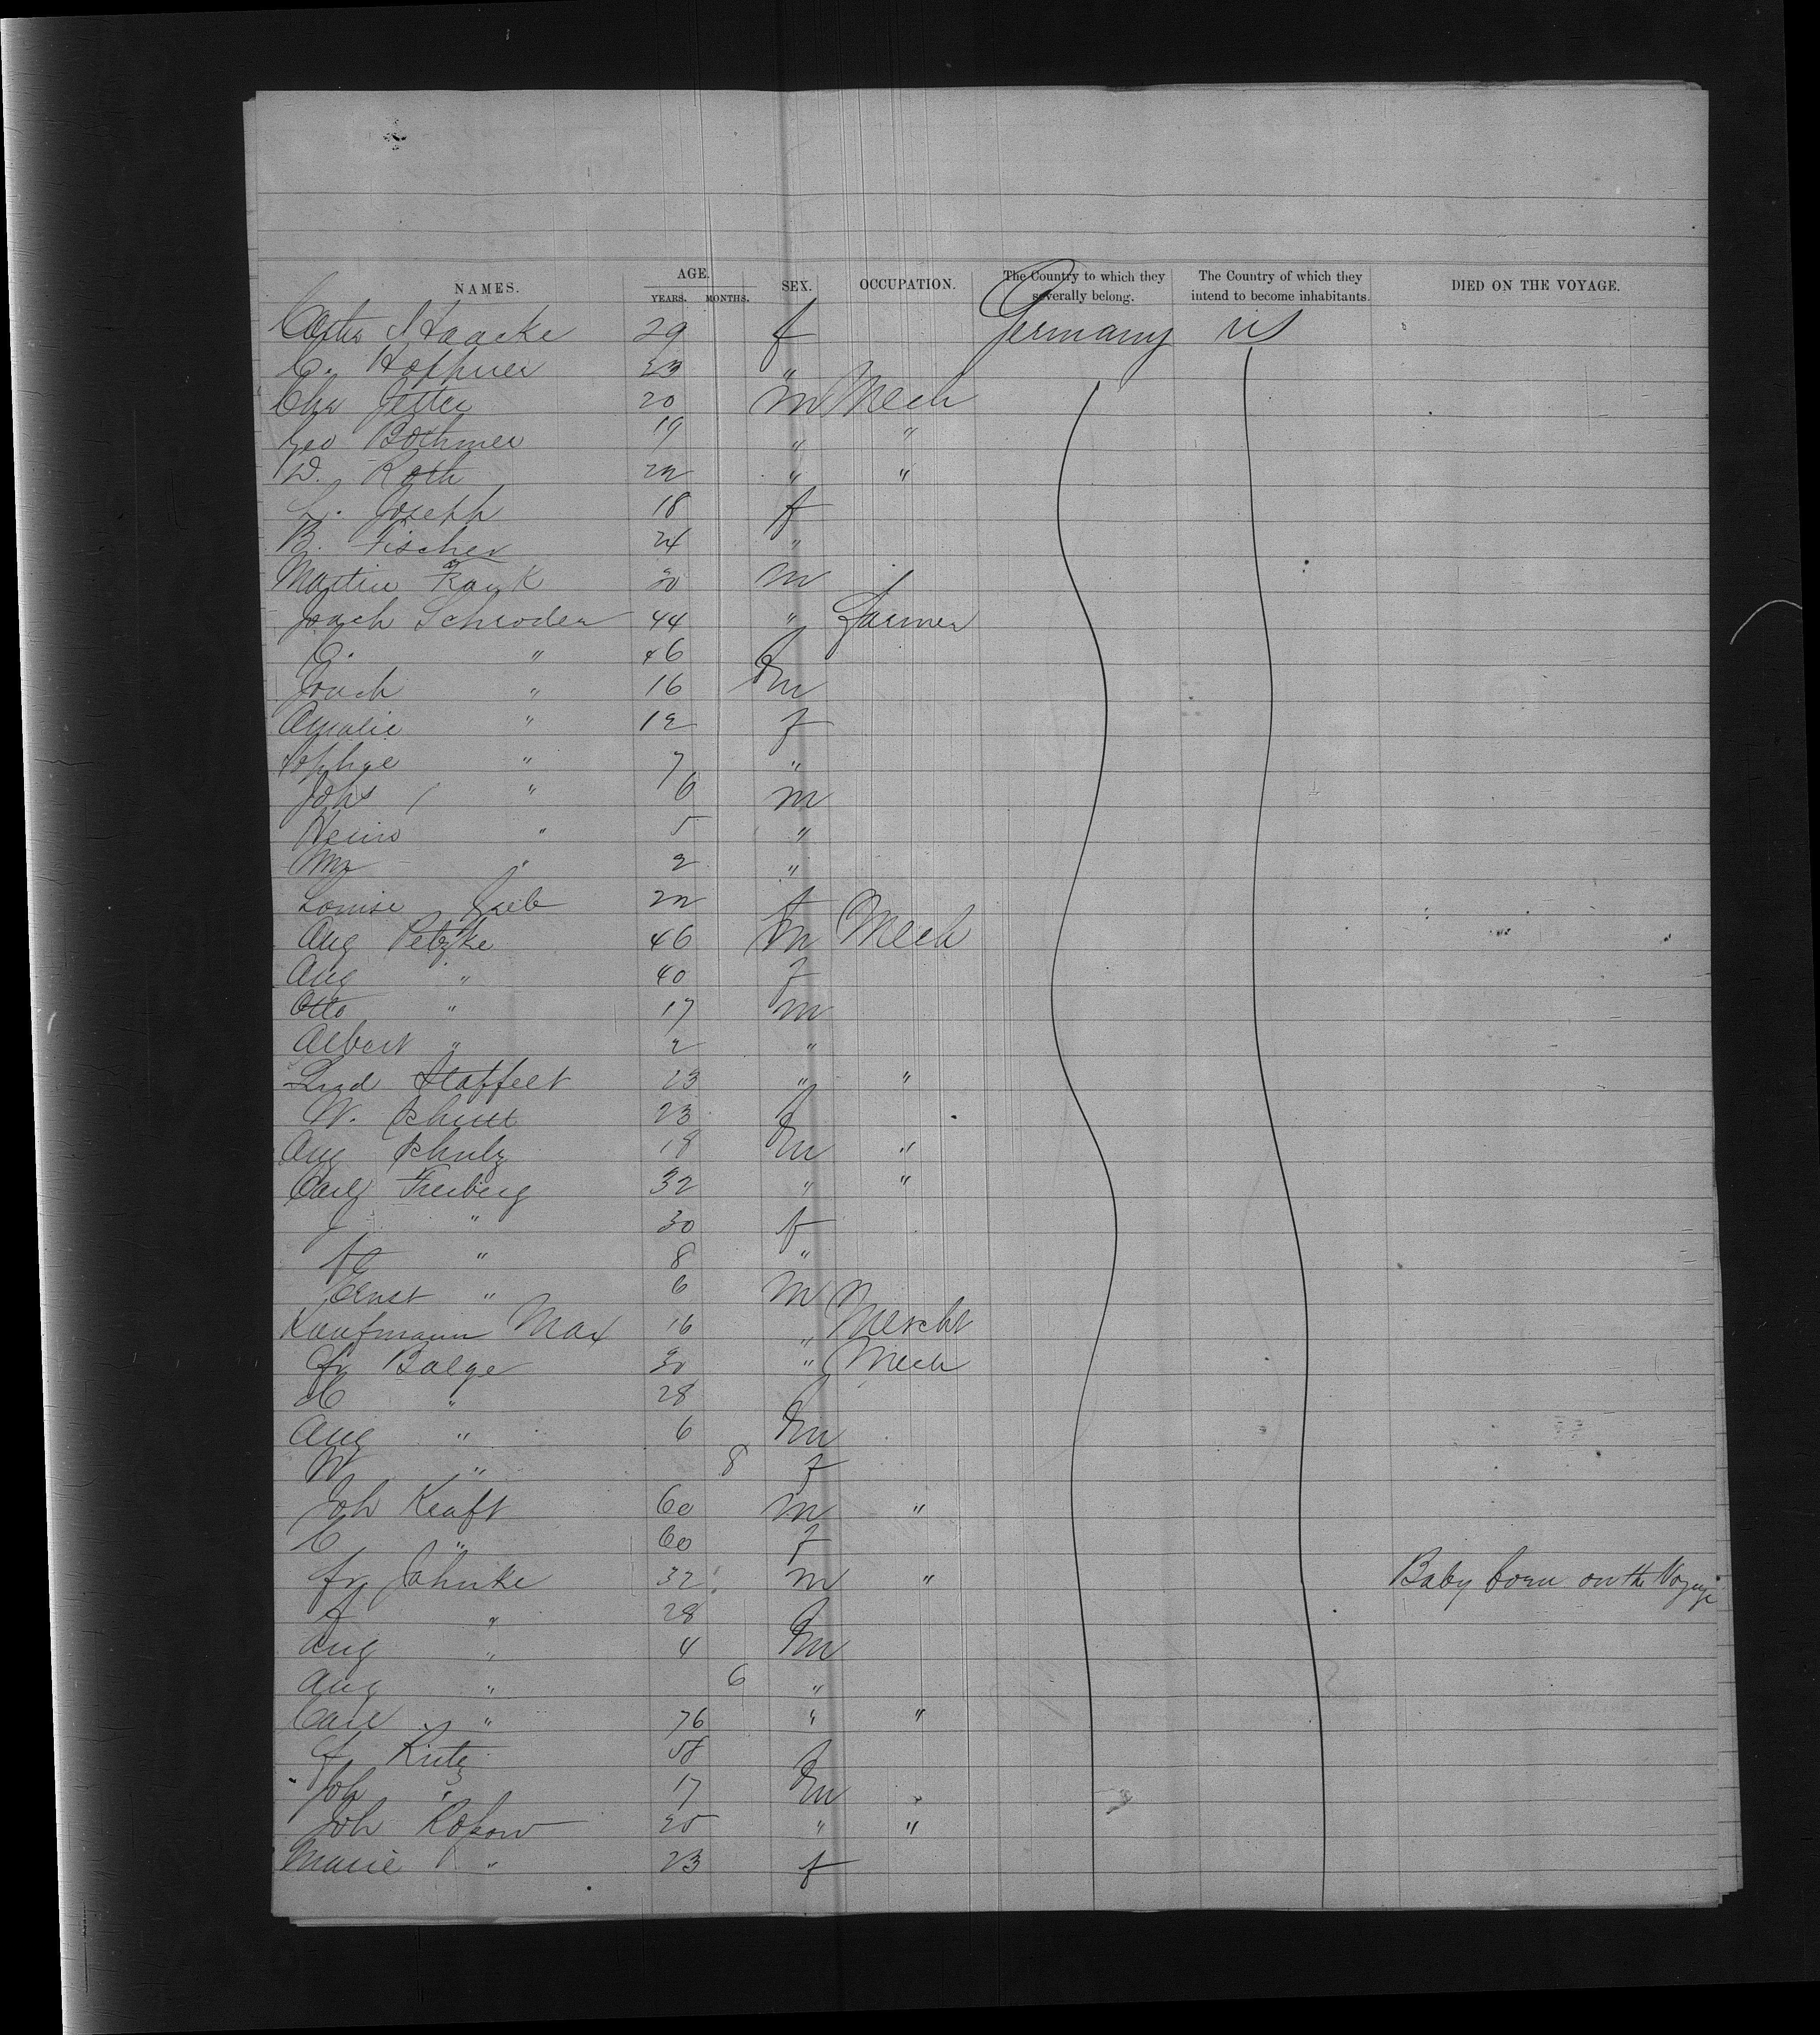 NAMES. AGE. YEARS. MONTHS. SEX. OCCUPATION. The Country to which they severally belong. The Country of which they intend to become inhabitants. DIED ON THE VOYAGE.
Haacke 29 f Germany US
C. Hoppner 23 "
Chr Jetter 20 m Mech
Geo Bothmer 19 " "
D. Roth 22 " "
L. Joseph 18 f
B. Fischer 24 "
Martin Frank 30 m
Joach Schroder 44 " Farmer
C. " 46 f
Joach " 16 m
Amalie " 12 f
Sophie " 7 "
Johs " 6 m
Heinr " 5 "
Wm " 2 "
Louise 22 f
Aug Petzke 46 m Mech
Aug " 40 f
Otto " 17 m
Albert " 2 "
Lud Staffelt 23 " "
W. 23 f
Aug Schulz 18 m "
Carl Freiberg 32 " "
J " 30 f
" 8 "
Ernst " 6 m
Kaufmann Max 16 " Mercht
Fr Balge 30 " Mech
" 28 f
Aug " 6 m
W " 8 f
Joh Kraft 60 m "
C " 60 f
Fr Jahnke 32 m " Baby born on the Voyage
" 28 f
Aug " 4 m
Aug " 6 "
Carl " 76 " "
F. Kutz 58 f
Joh " 17 m "
Joh Kopow 25 " "
Marie " 23 f